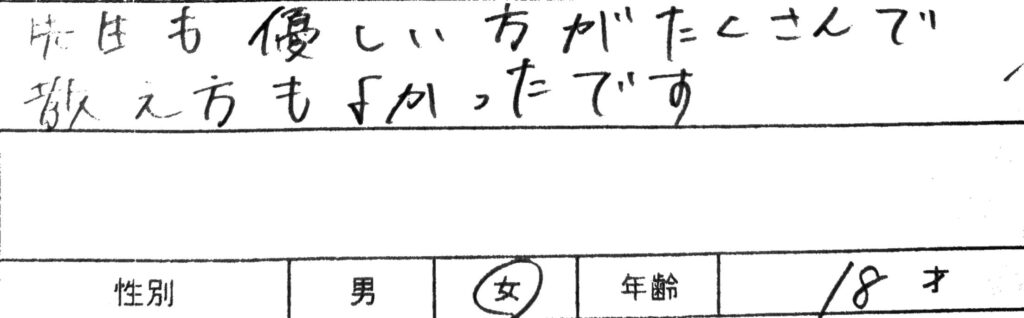 先生も優しい方がたくさんで
教え方もよかったです
性別 男 女 年齢 18才